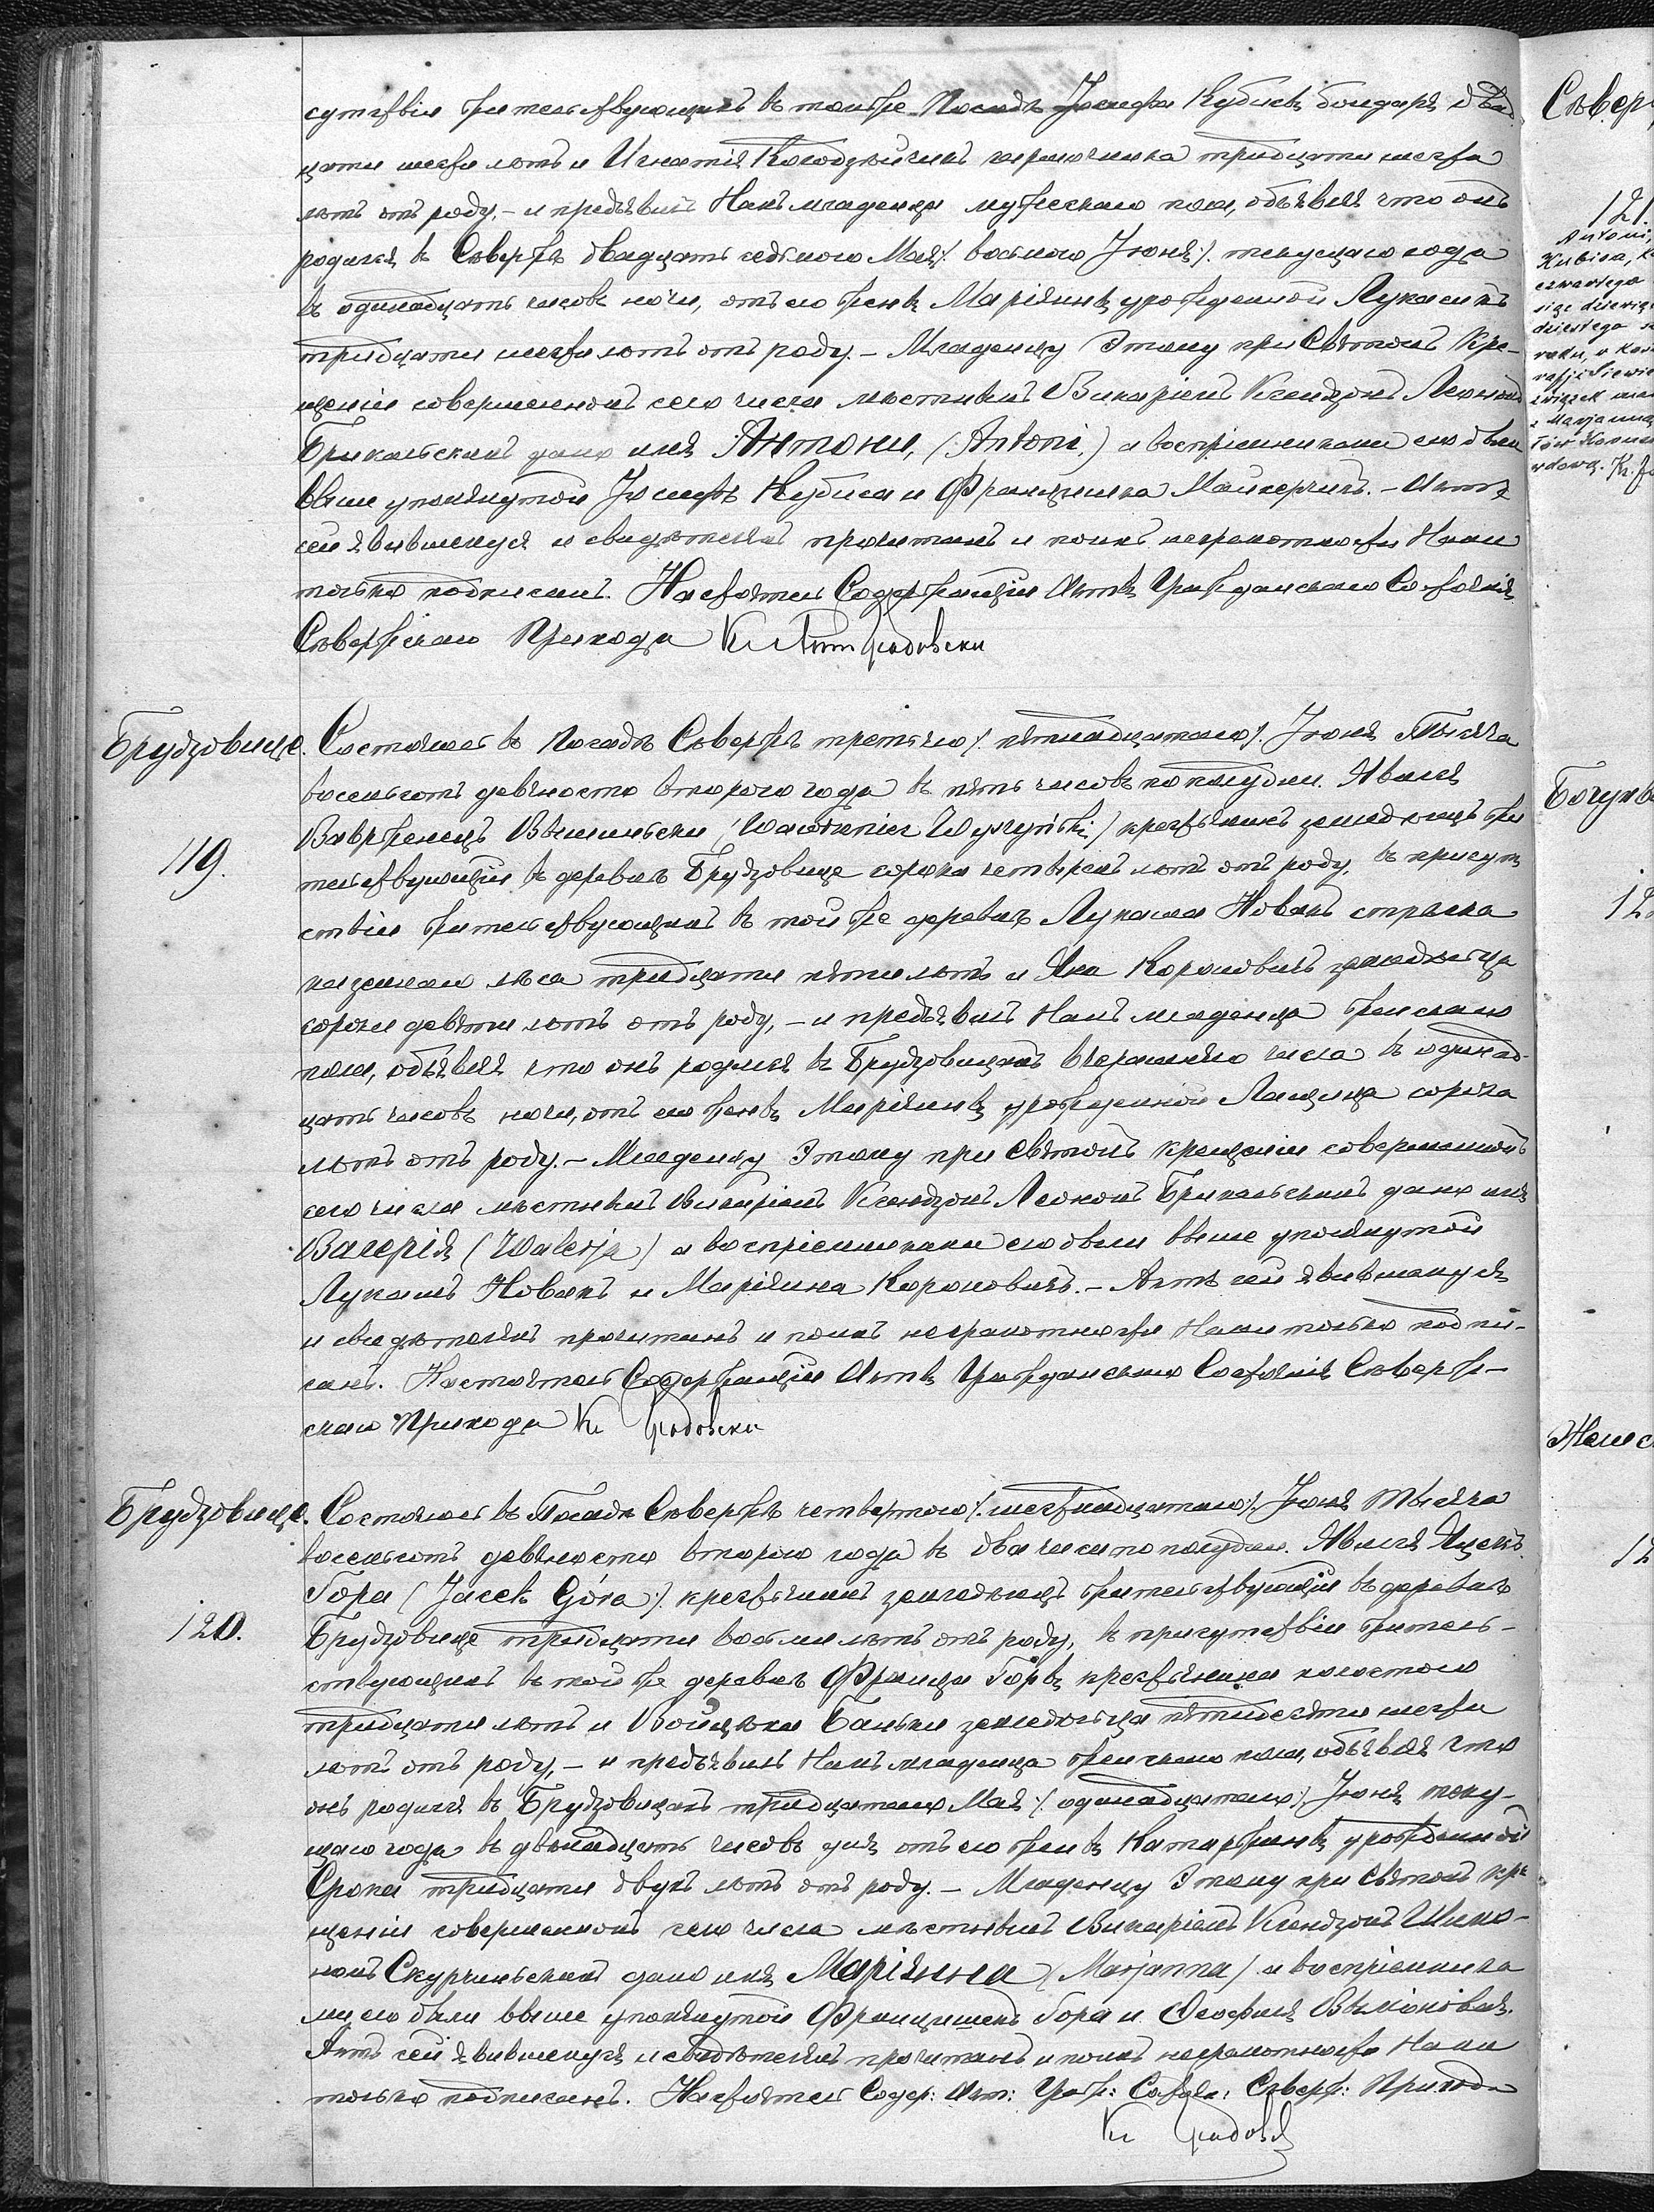 сутствіи жительствующихъ въ томъ же Посадѣ Юзефа Кубисы бондаря двад-
цати шести лѣтъ и Игнатія Колодзѣйчикъ тридцати шести
лѣтъ отъ роду, – и предъявилъ Намъ младенца мужескаго пола, объявляя что онъ
родился въ Сѣвержѣ двадцать седьмого Мая /. восьмого Іюня /. текущаго года
въ одинадцать часовъ ночи, отъ его жены Маріянны урожденной Лукасикъ
тридцати шести лѣтъ отъ роду. – Младенцу Этому при Святомъ Кре-
щеніи совершенномъ сего числа мѣстнымъ Викаріемъ Ксендзомъ Леономъ
Брикальскимъ дано имя Антони, (Antoni.) а воспріемниками его были
выше упомянутой Юзефъ Кубиса и Францишка Майхерчикъ. – Актъ
сей явившемуся и свидѣтелямъ прочитанъ и по ихъ неграмотности Нами
только подписанъ. Настоятель Содержащій Акты Гражданскаго Состоянія
Сѣвержскаго Прихода К.
Брудзовице.
119.
Состоялось въ Посадѣ Сѣвержѣ третьяго /. пятнадцатаго /. Іюня Тысяча
восемьсотъ девяносто второго года въ пять часовъ по полудни. Явился
Вавржинецъ (Wawrzeniec Wyszyński) крестьянинъ земледѣлецъ жи-
тельствующій въ деревнѣ Брудзовице сорока четырехъ лѣтъ отъ роду, въ присут-
ствіи жительствующихъ въ той же деревнѣ Лукаша Новакъ стрѣлка
казеннаго лѣса тридцати пяти лѣтъ и Яна Короновичъ земледѣльца
сорока девяти лѣтъ отъ роду, – и предъявилъ Намъ младенца женскаго
пола, объявляя что онъ родился въ Брудзовицахъ вчерашняго числа въ одинад-
цать часовъ ночи, отъ его жены Маріянны урожденной сорока
лѣтъ отъ роду. – Младенцу Этому при Святомъ крещеніи совершенномъ
сего числа мѣстнымъ Викаріемъ Ксендзомъ Леономъ Брикальскимъ дано имя
Валерія (Walerja) а воспріемниками его были выше упомянутой
Лукашъ Новакъ и Маріянна Короновичъ. – Актъ сей явившемуся
и свидѣтелямъ прочитанъ и по ихъ неграмотности Нами только подпи-
санъ. Настоятель Содержащій Акты Гражданскаго Состоянія Сѣверж-
скаго Прихода К.
Брудзовице.
120.
Состоялось въ Посадѣ Сѣвержѣ четвертого /. шестнадцатаго /. Іюня Тысяча
восемьсотъ девяносто второго года въ два часа по полудни. Явился Яцекъ
Гора (Jacek Góra /. крестьянинъ земледѣлецъ жительствующій въ деревнѣ
Брудзовице тридцати восьми лѣтъ отъ роду, въ присутствіи житель-
ствующихъ въ той же деревнѣ Францишка Горы крестьянина холостого
тридцати лѣтъ и Войцѣха земледѣльца пятидесяти шести
лѣтъ отъ роду, – и предъявилъ Намъ младенца женскаго пола, объявляя что
онъ родился въ Брудзовицахъ тридцатаго Мая /. одинадцатаго /. Іюня теку-
щаго года въ двѣнадцать часовъ дня, отъ его жены Катаржины урожденной
Срока тридцати двухъ лѣтъ отъ роду. – Младенцу Этому при Святомъ кре-
щеніи совершенномъ сего числа мѣстнымъ Викаріемъ Ксендзомъ
Скурчинскимъ дано имя Маріянна (Marjanna) а воспріемника-
ми его были выше упомянутой Францишекъ Гора и Ѳеофиля
Актъ сей явившемуся и свидѣтелямъ прочитанъ и по ихъ неграмотности Нами
только подписанъ. Настоятель Содер: Акт: Граж: Сѣверж: Прихода
К.
Сѣвер
121.
Antoni,
Kubisa,
czwartego